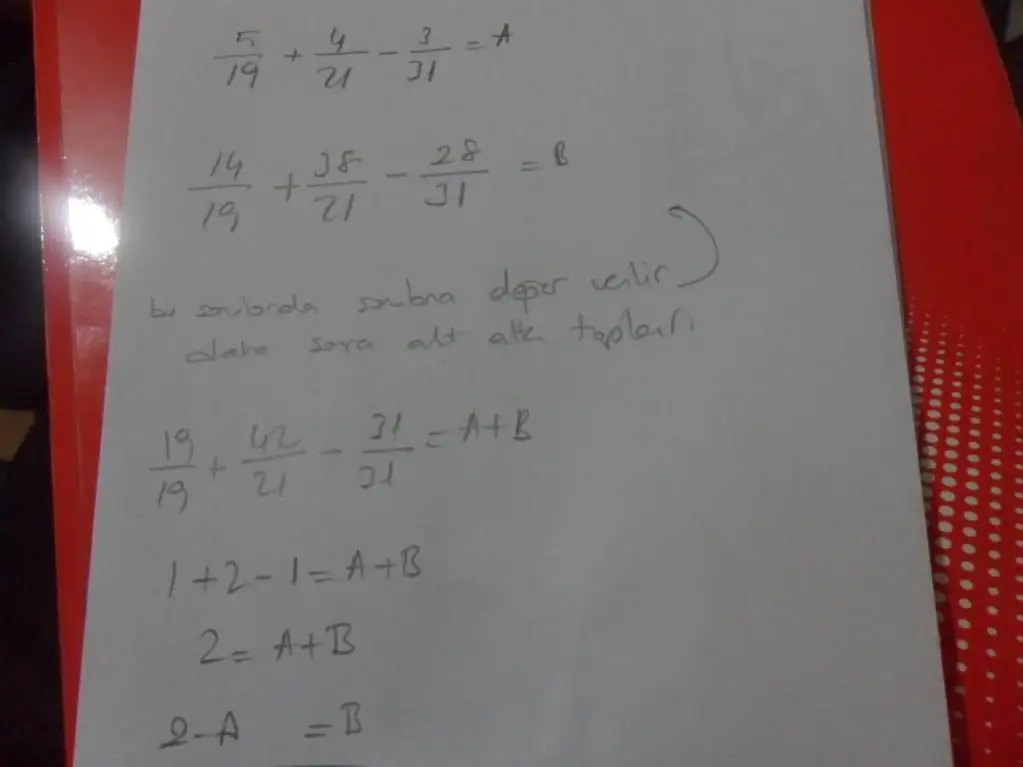 5/19 + 4/21 - 3/31 = A
14/19 + 38/21 - 28/31 = B
bu sorularda sorulana değer verilir
daha sonra alt alta toplanır.
19/19 + 42/21 - 31/31 = A+B
1+2-1=A+B
2=A+B
2-A =B